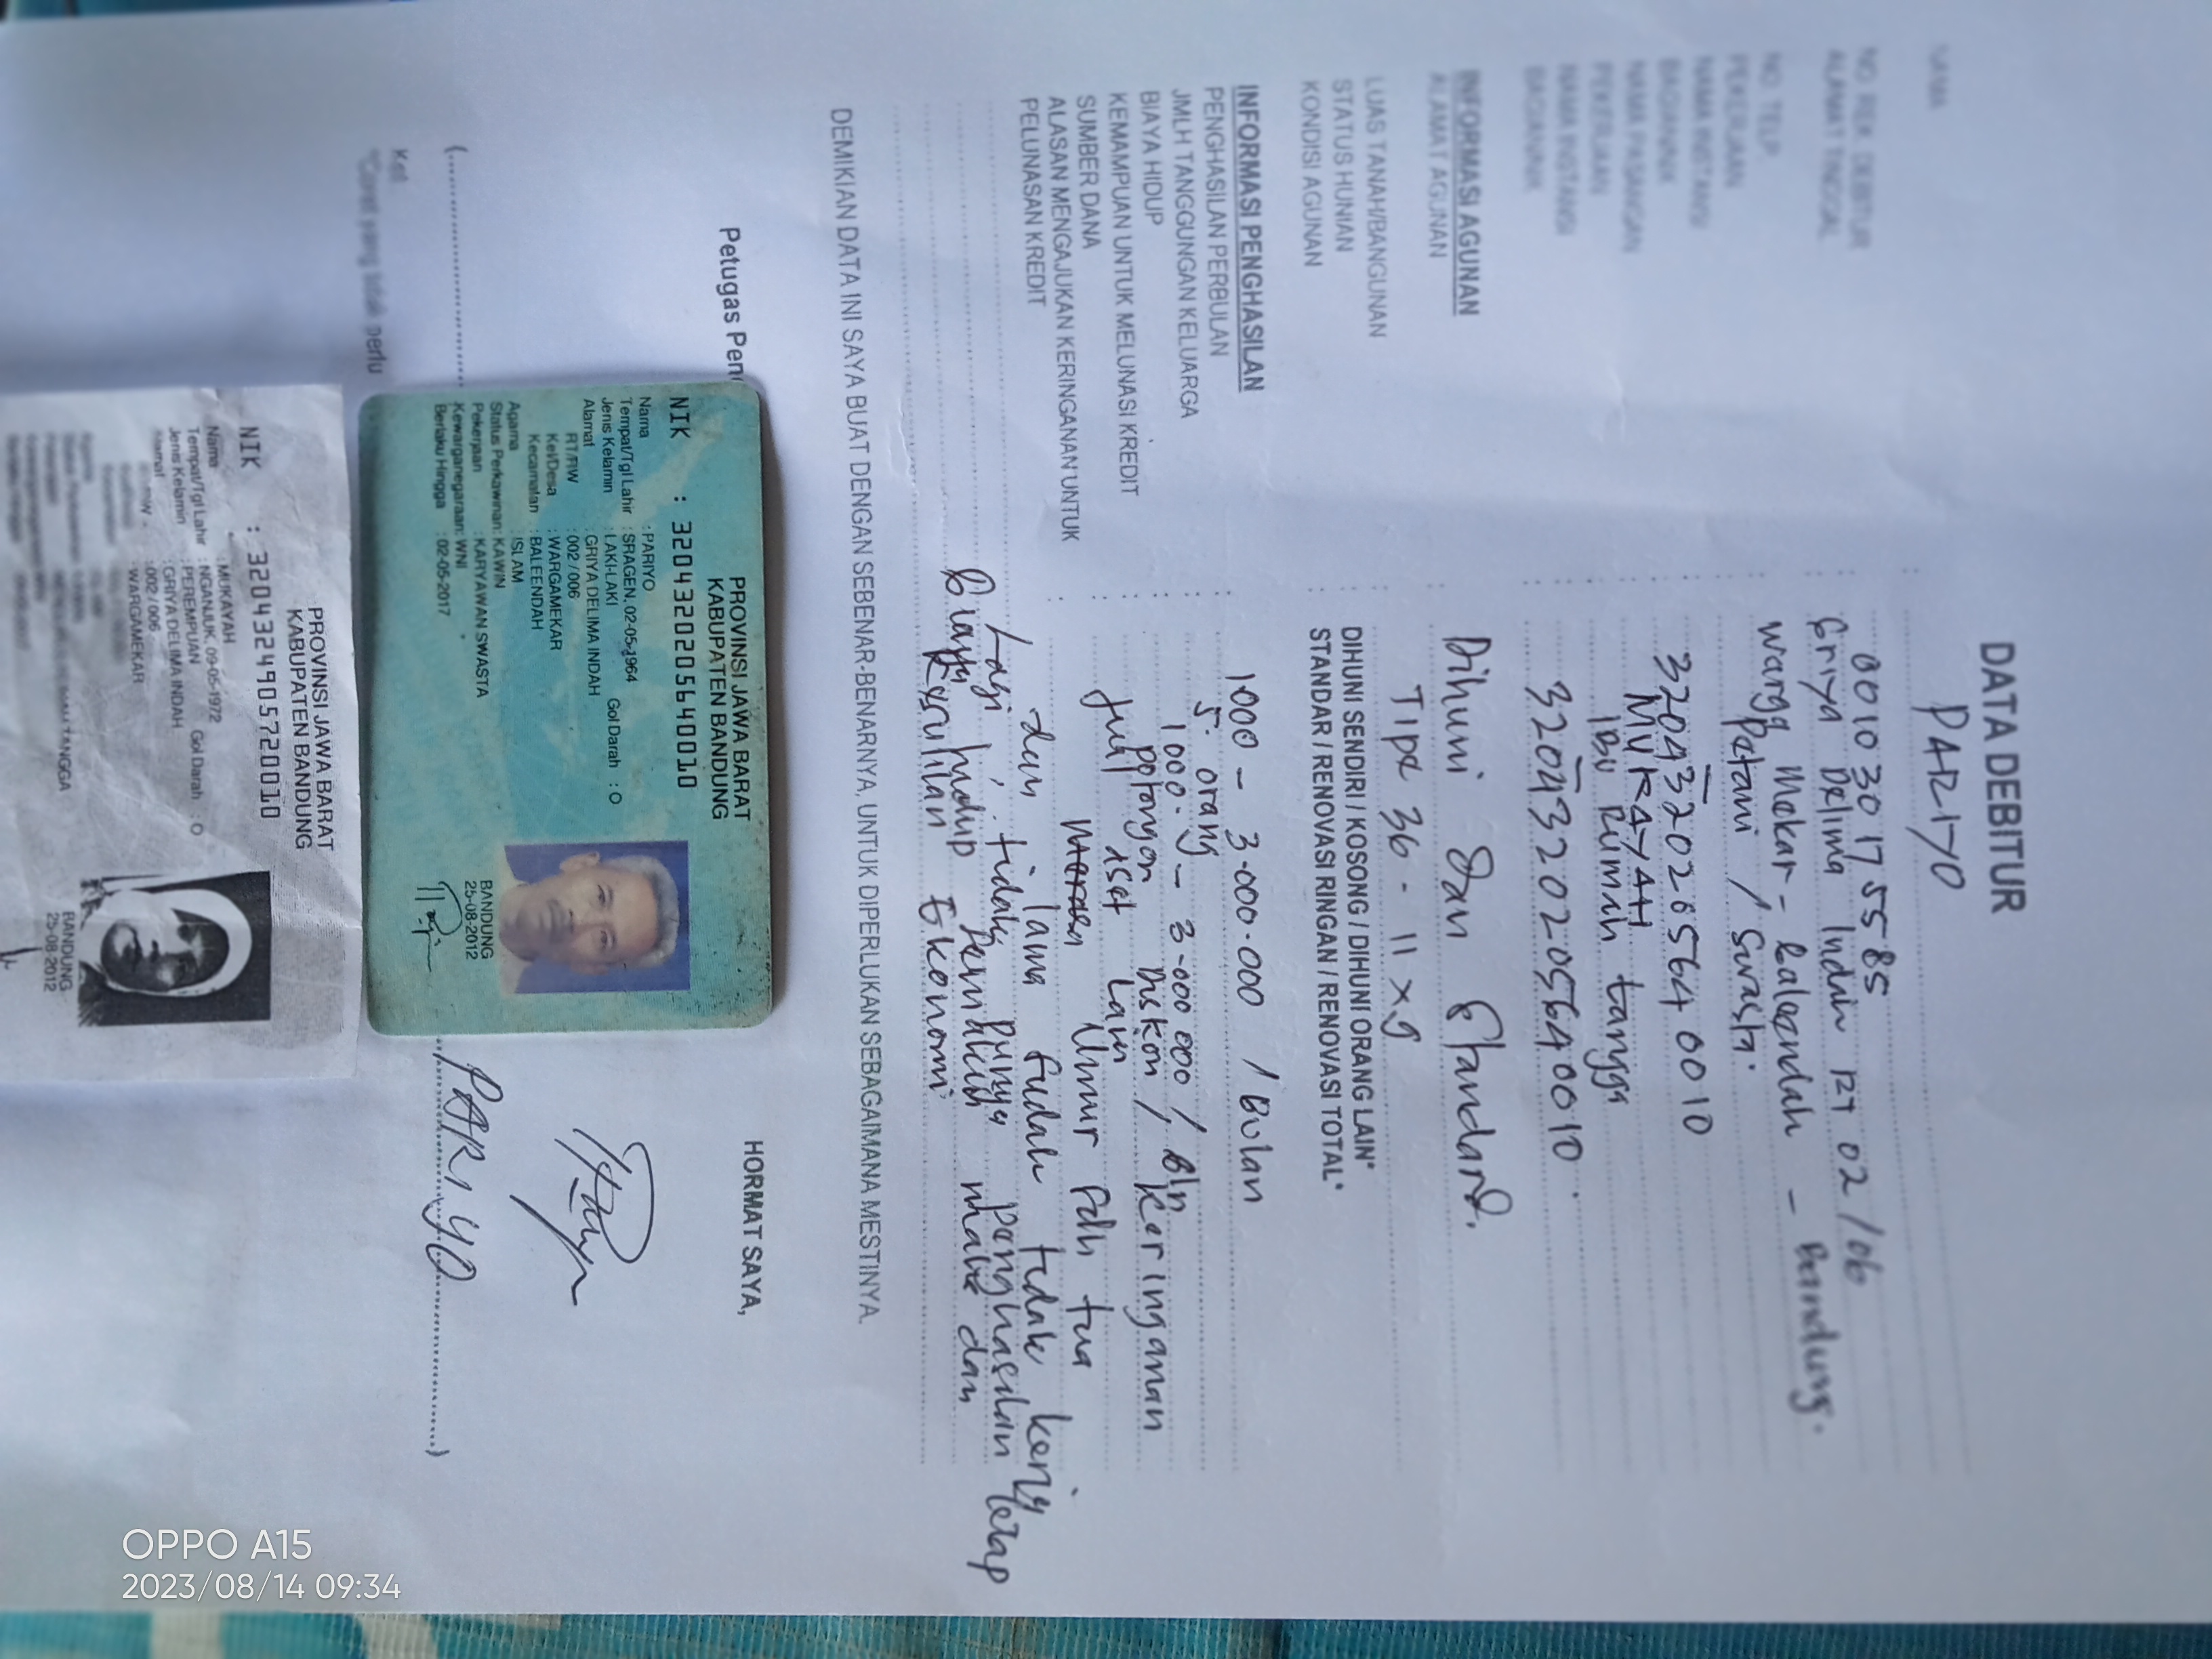 DATA DEBITUR
NAMA : PARIYO
NO. REK. DEBITUR : 00 10 30 17 55 85
ALAMAT TINGGAL : Griya Delima Indah RT 02/06
Warga Mekar - Baleendah - Bandung.
NO. TELP.
PEKERJAAN : Petani / Swasta.
NAMA INSTANSI
BAGIAN/NIK : 3204320205640010
NAMA PASANGAN : MUKAYAH
PEKERJAAN : IBU RUMAH tangga
NAMA INSTANSI
BAGIAN/NIK : 3204320205640010.
INFORMASI AGUNAN
ALAMAT AGUNAN : Dihuni dan Standard.
LUAS TANAH/BANGUNAN : TIPE 36 - 11 x 9
STATUS HUNIAN : DIHUNI SENDIRI / KOSONG / DIHUNI ORANG LAIN*
KONDISI AGUNAN : STANDAR / RENOVASI RINGAN / RENOVASI TOTAL*
INFORMASI PENGHASILAN
PENGHASILAN PERBULAN : 1000 - 3.000.000 / Bulan
JMLH TANGGUNGAN KELUARGA : 5. orang
BIAYA HIDUP : 1000. - 3.000.000 / Bln
KEMAMPUAN UNTUK MELUNASI KREDIT : Potongan Diskon / Keringanan
SUMBER DANA : Jual Aset Lain
ALASAN MENGAJUKAN KERINGANAN UNTUK
PELUNASAN KREDIT : Umur sdh tua
dan lama sudah tidak kerja
Lagi, tidak punya penghasilan tetap
Biaya hidup semakin mahal dan
Kesulitan Ekonomi
DEMIKIAN DATA INI SAYA BUAT DENGAN SEBENAR-BENARNYA, UNTUK DIPERLUKAN SEBAGAIMANA MESTINYA.
Petugas Pen
HORMAT SAYA,
PARIYO
Ket
*Coret yang tidak perlu
PROVINSI JAWA BARAT
KABUPATEN BANDUNG
NIK : 3204320205640010
Nama : PARIYO
Tempat/Tgl Lahir : SRAGEN, 02-05-1964
Jenis Kelamin : LAKI-LAKI Gol Darah : O
Alamat : GRIYA DELIMA INDAH
RT/RW : 002/006
Kel/Desa : WARGAMEKAR
Kecamatan : BALEENDAH
Agama : ISLAM
Status Perkawinan: KAWIN
Pekerjaan : KARYAWAN SWASTA
Kewarganegaraan: WNI
Berlaku Hingga : 02-05-2017
BANDUNG
25-08-2012
PROVINSI JAWA BARAT
KABUPATEN BANDUNG
NIK : 3204324905720010
Nama : MUKAYAH
Tempat/Tgl Lahir : NGANJUK, 09-05-1972
Jenis Kelamin : PEREMPUAN Gol Darah : O
Alamat : GRIYA DELIMA INDAH
: 002/006
: WARGAMEKAR
BANDUNG
25-08-2012
OPPO A15
2023/08/14 09:34